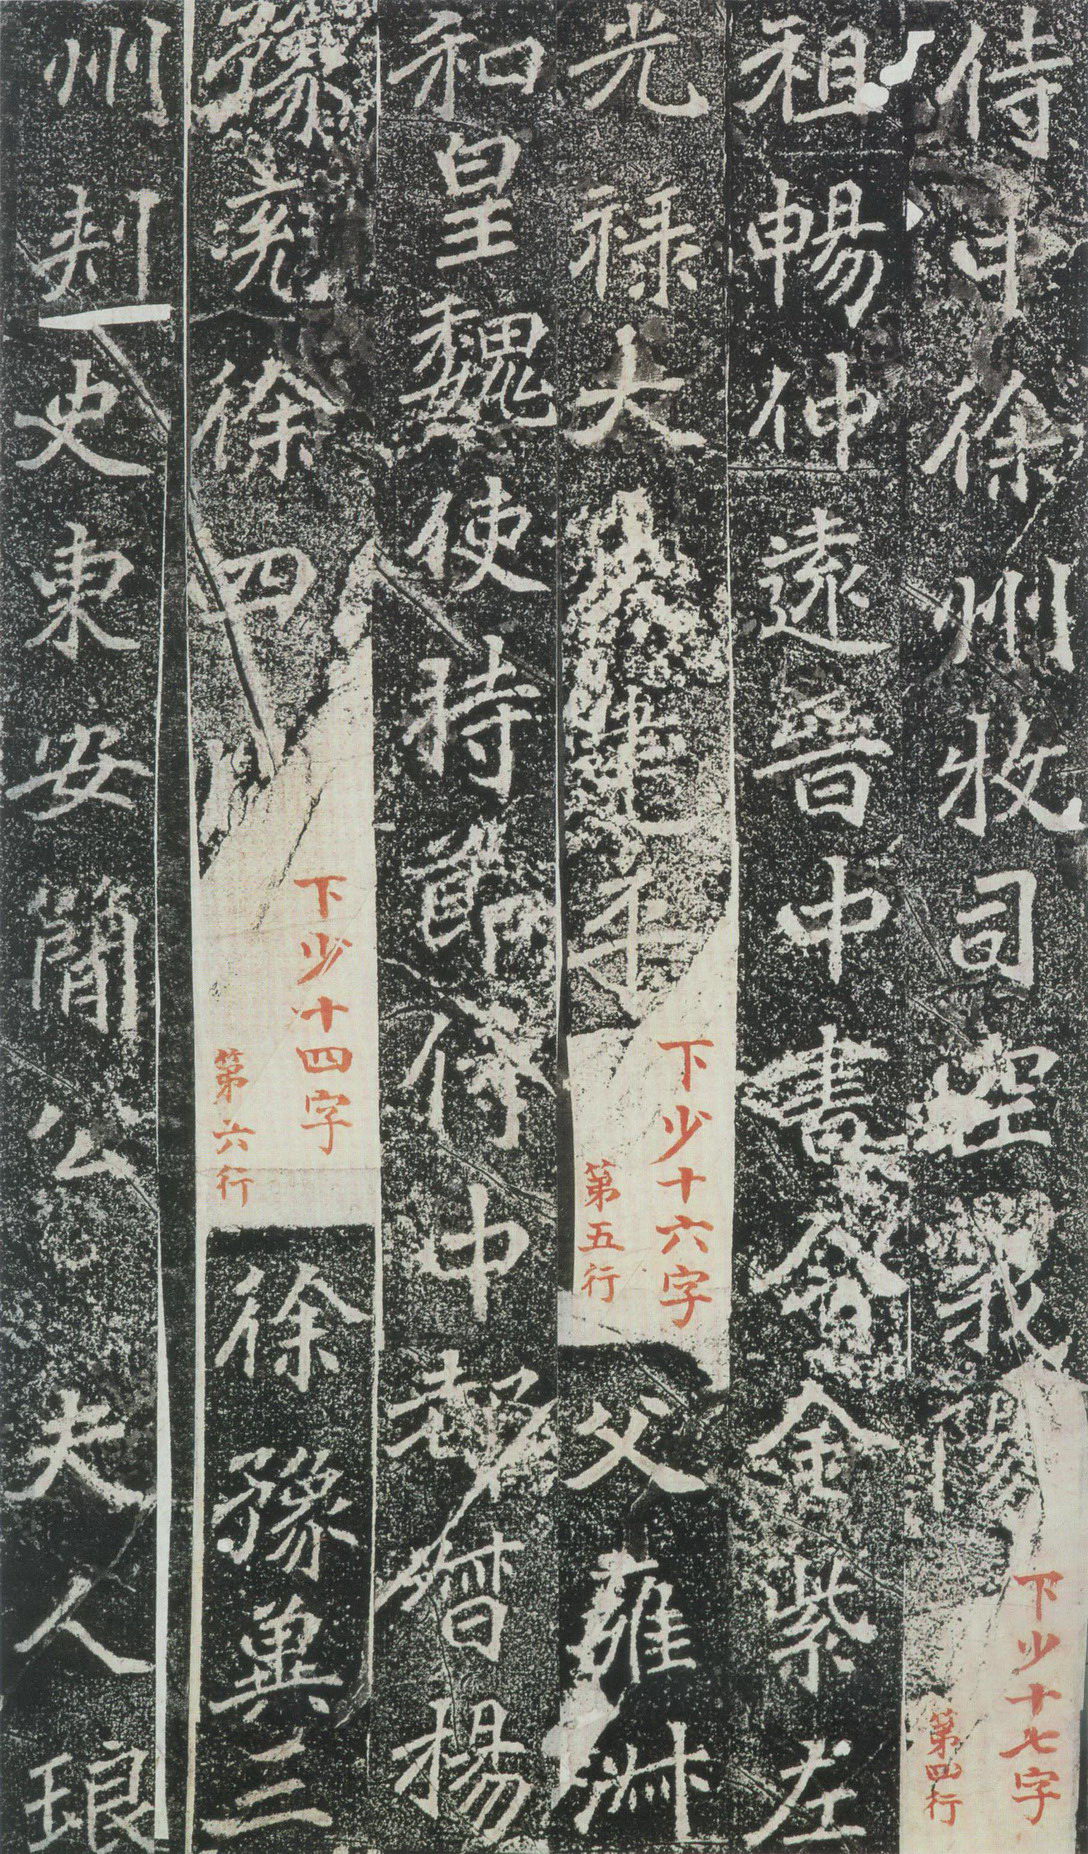 侍中徐州牧司空義陽
下少十七字
第四行
祖暢仲遠晉中書令金紫左
光祿大夫建平
下少十六字
第五行
父雍淑
和皇魏使持節侍中都督揚
豫兗徐四
下少十四字
第六行
徐豫冀三
州刺史東安簡公夫人琅